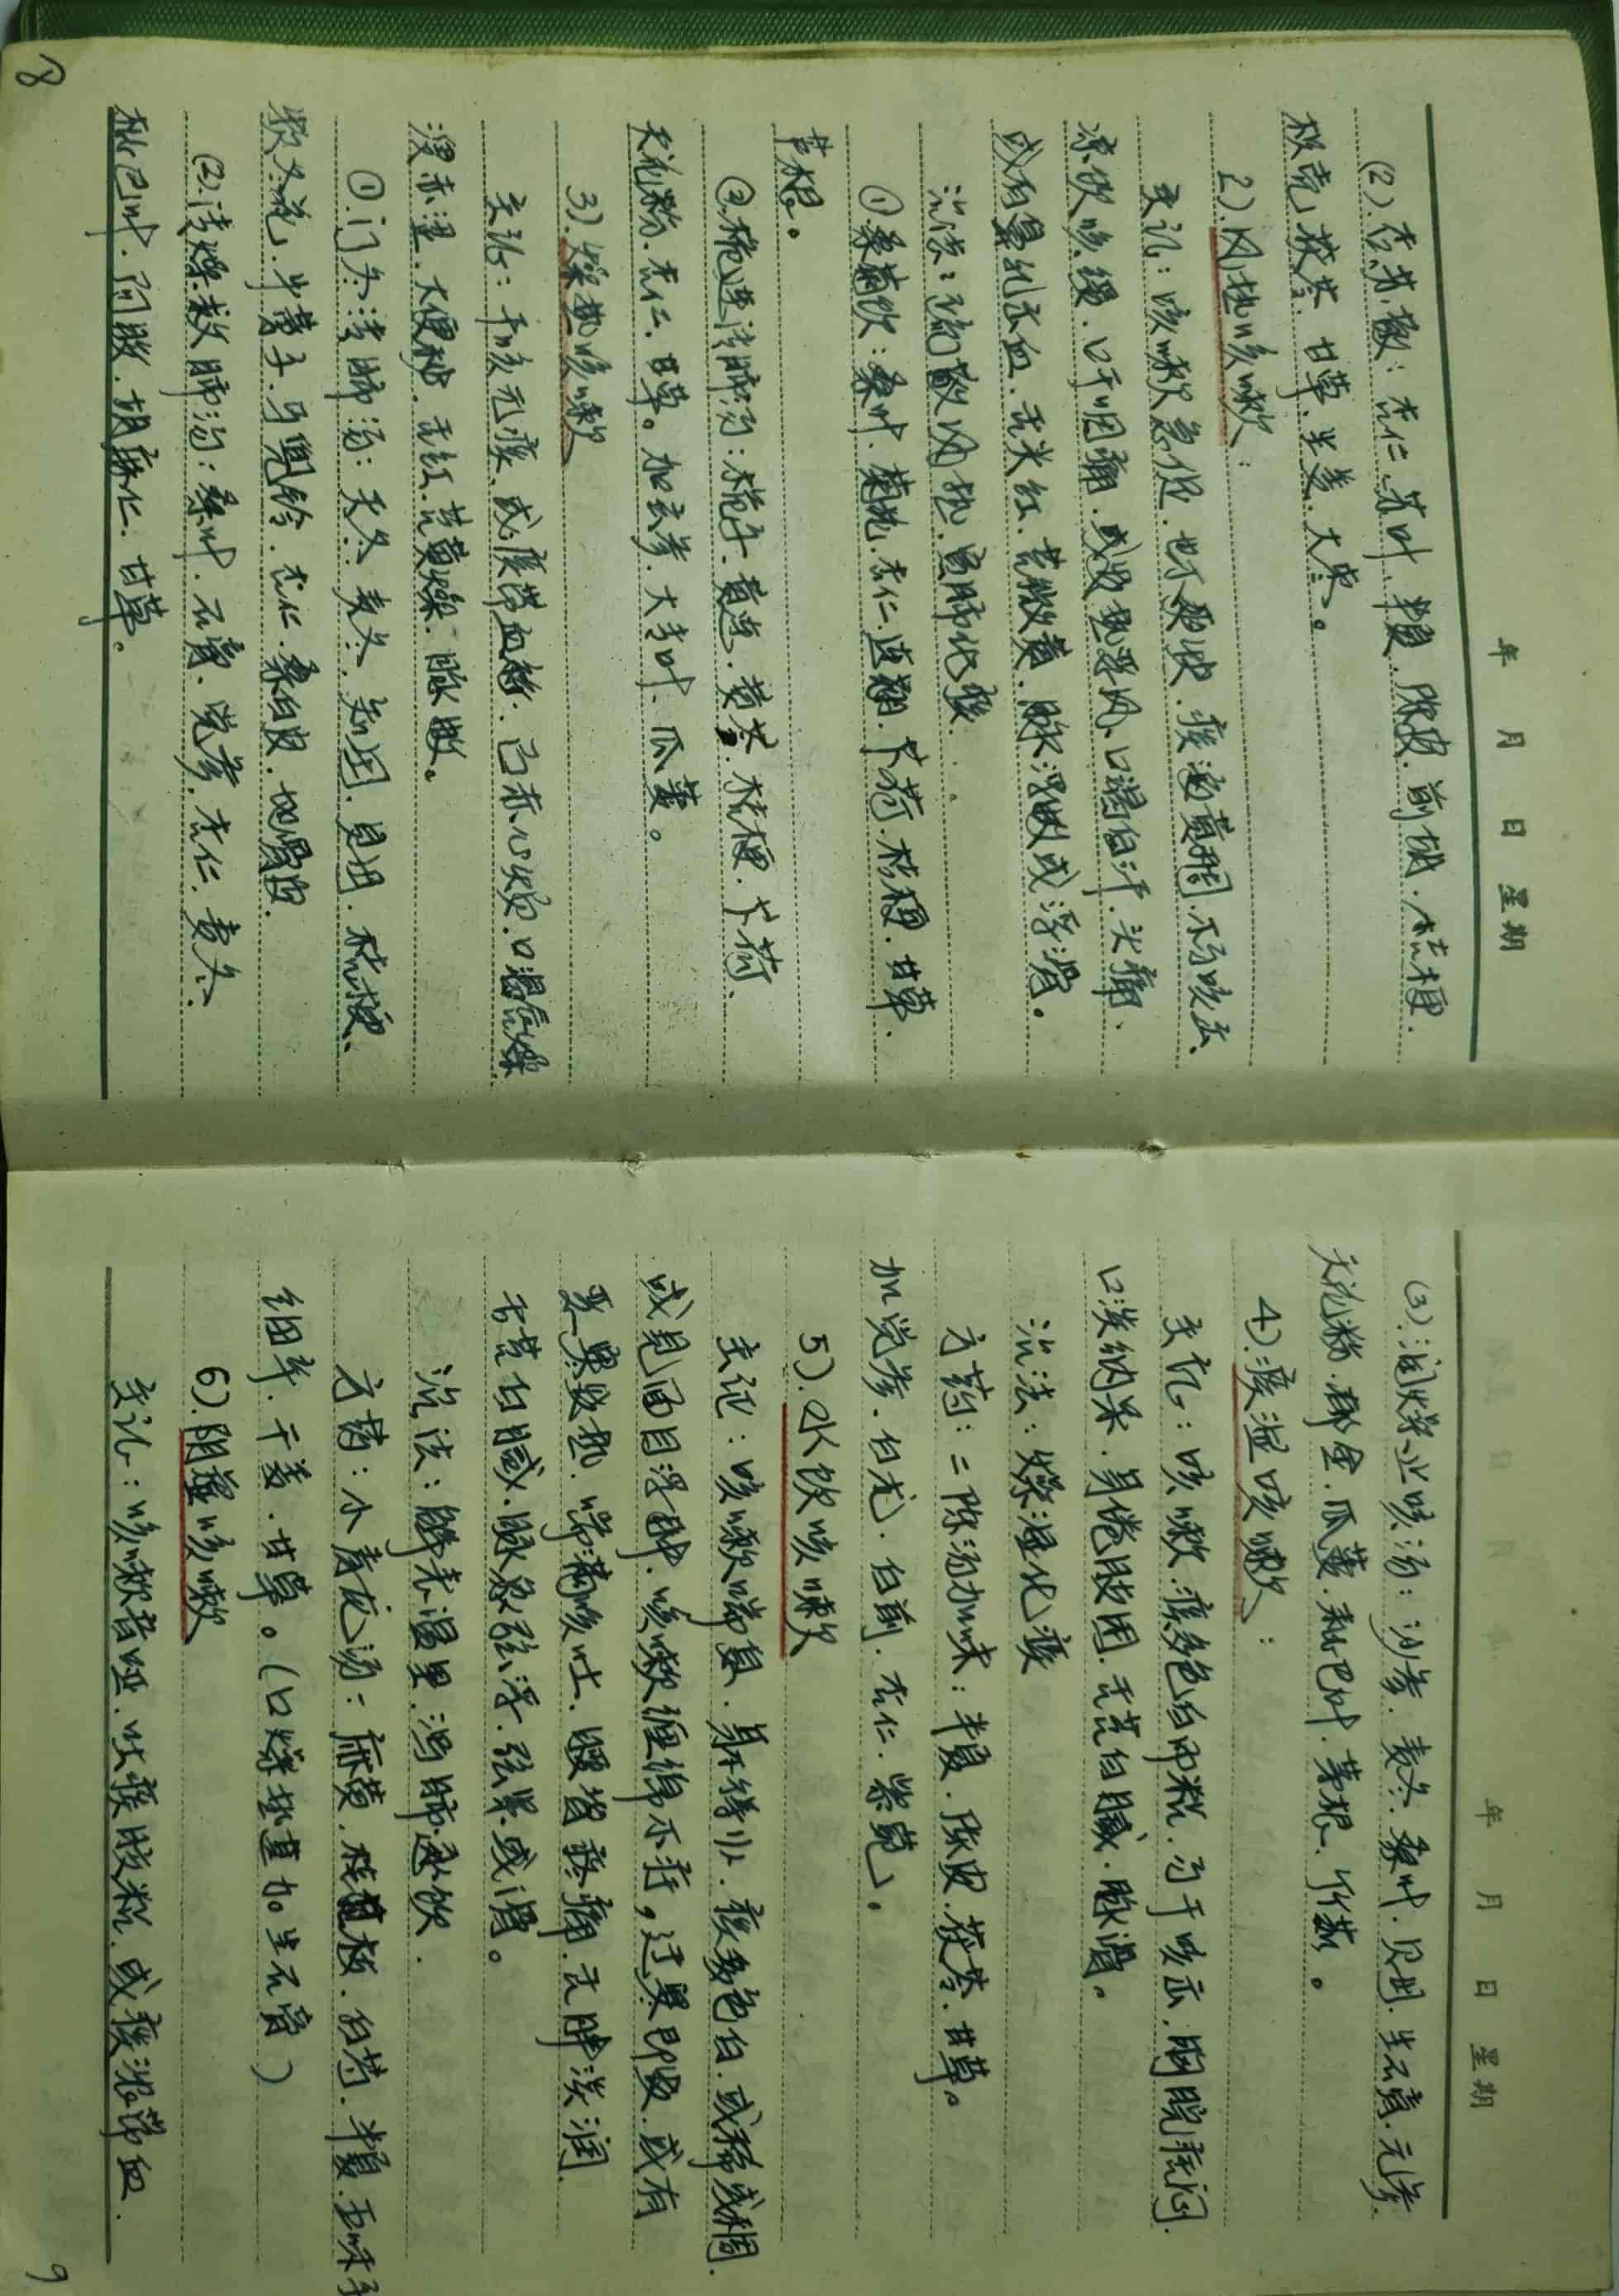 年 月 日 星期
(2).杏苏散：杏仁.苏叶.半夏.陈皮.前胡.桔梗.
枳壳.茯苓.甘草.生姜.大枣。
2).风热咳嗽：
主证：咳嗽急促.也不爽快.痰涌黄稠.不易咳出、
凉饮咳缓.口干咽痛.或发热恶风、口渴自汗.头痛、
或有鼻孔衄血.舌尖红.苔微黄.脉浮数或浮滑。
治法：疏散风热.宣肺化痰.
①.桑菊饮：桑叶.菊花.杏仁.连翘.薄荷.桔梗.甘草.
芦根。
②.栀连清肺汤：栀子.黄连.黄芩.桔梗.薄荷、
天花粉.杏仁.甘草。加玄参.大青叶.瓜蒌。
3).燥热咳嗽
主证：干咳无痰.或痰带血丝.心烦.口渴
溲赤涩.大便秘.舌红.苔黄燥.脉数。
①.门冬清肺汤：天冬.麦冬.知母.贝母.桔梗、
款冬花.牛蒡子.马兜铃.杏仁.桑白皮.地骨皮.
(2).清燥救肺汤：桑叶.石膏.党参.杏仁.麦冬.
枇巴叶.阿胶.胡麻仁.甘草。
8
年 月 日 星期
(3).润燥止咳汤：沙参.麦冬.桑叶.贝母.生石膏.元参.
天花粉.郁金.瓜蒌.枇巴叶.茅根.竹茹。
4).痰湿咳嗽：
主证：咳嗽.痰多色白而粘.易于咳出.胸脘痞闷.
口淡纳呆.身倦肢困.舌苔白腻.脉滑。
治法：燥湿化痰
方药：二陈汤加味：半夏.陈皮.茯苓.甘草。
加党参.白术.白前.杏仁.紫菀)。
5).水饮咳嗽
主证：咳嗽喘息.身不得卧.痰多色白.或稀或稠.
或见面目浮肿.咳嗽缠绵不痊.遇寒即发.或有
恶寒发热.喘满咳吐.腰背疼痛.舌胖淡润.
舌苔白腻.脉象弦浮.弦紧.或滑。
治法：解表温里.泻肺逐饮.
方药：小青龙汤：麻黄.桂枝.白芍.半夏.五味子
细辛.干姜.甘草。(口燥热重加生石膏)
6).阴虚咳嗽
主证：咳嗽音哑.吐痰胶粘.或痰浓带血.
9